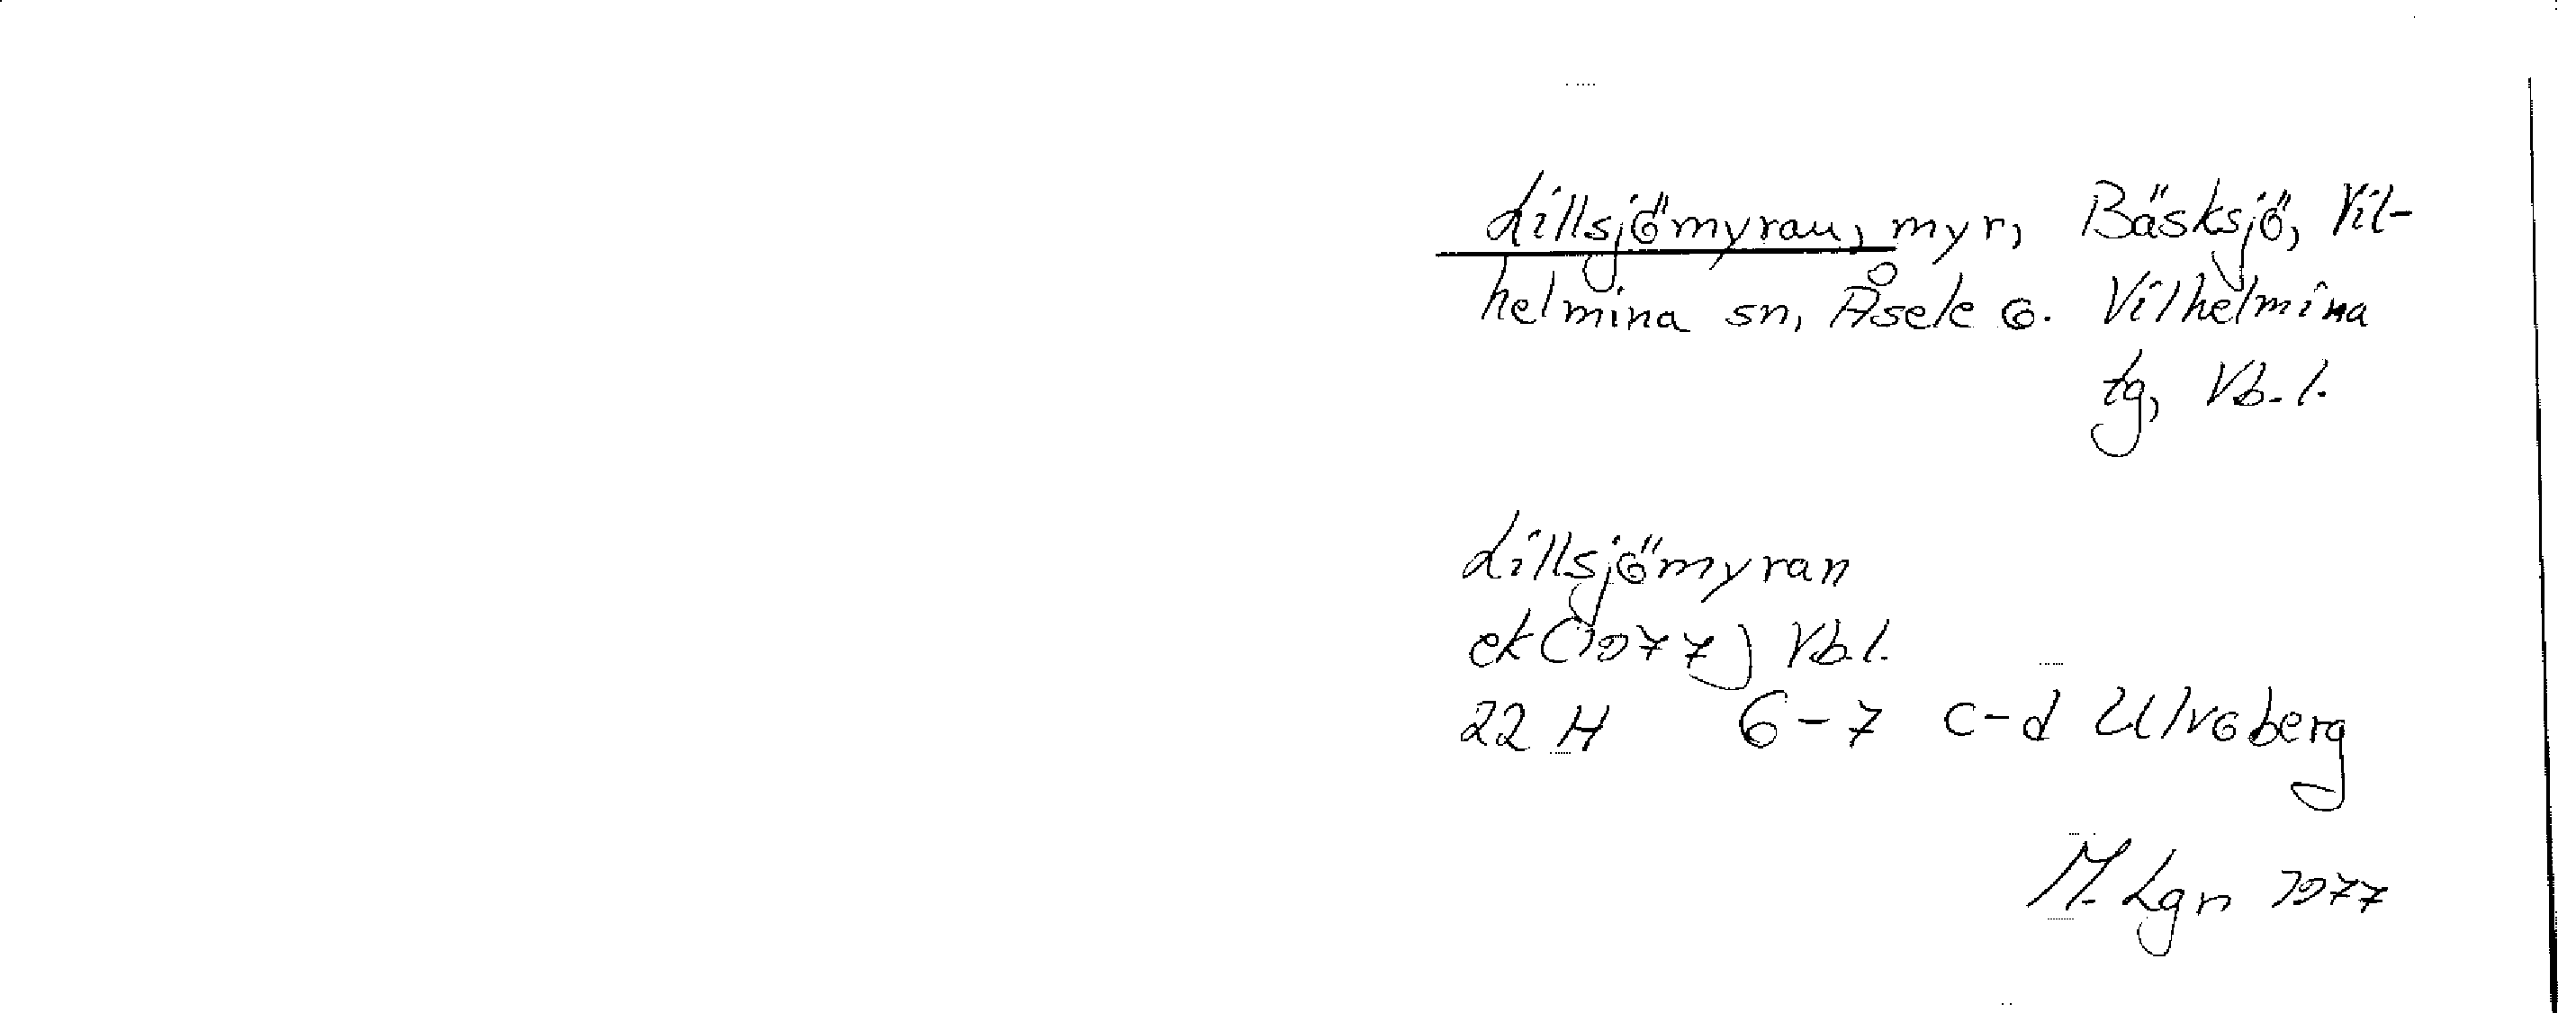 Lillsjömyran, myr, Bäsksjö, Vil-
helmina sn, Åsele o. Vilhelmina
tg, Vb. l.
Lillsjömyran
ek (1977) Vb. l.
22 H 6-7 c-d Ulvoberg
M. Lgn 1977